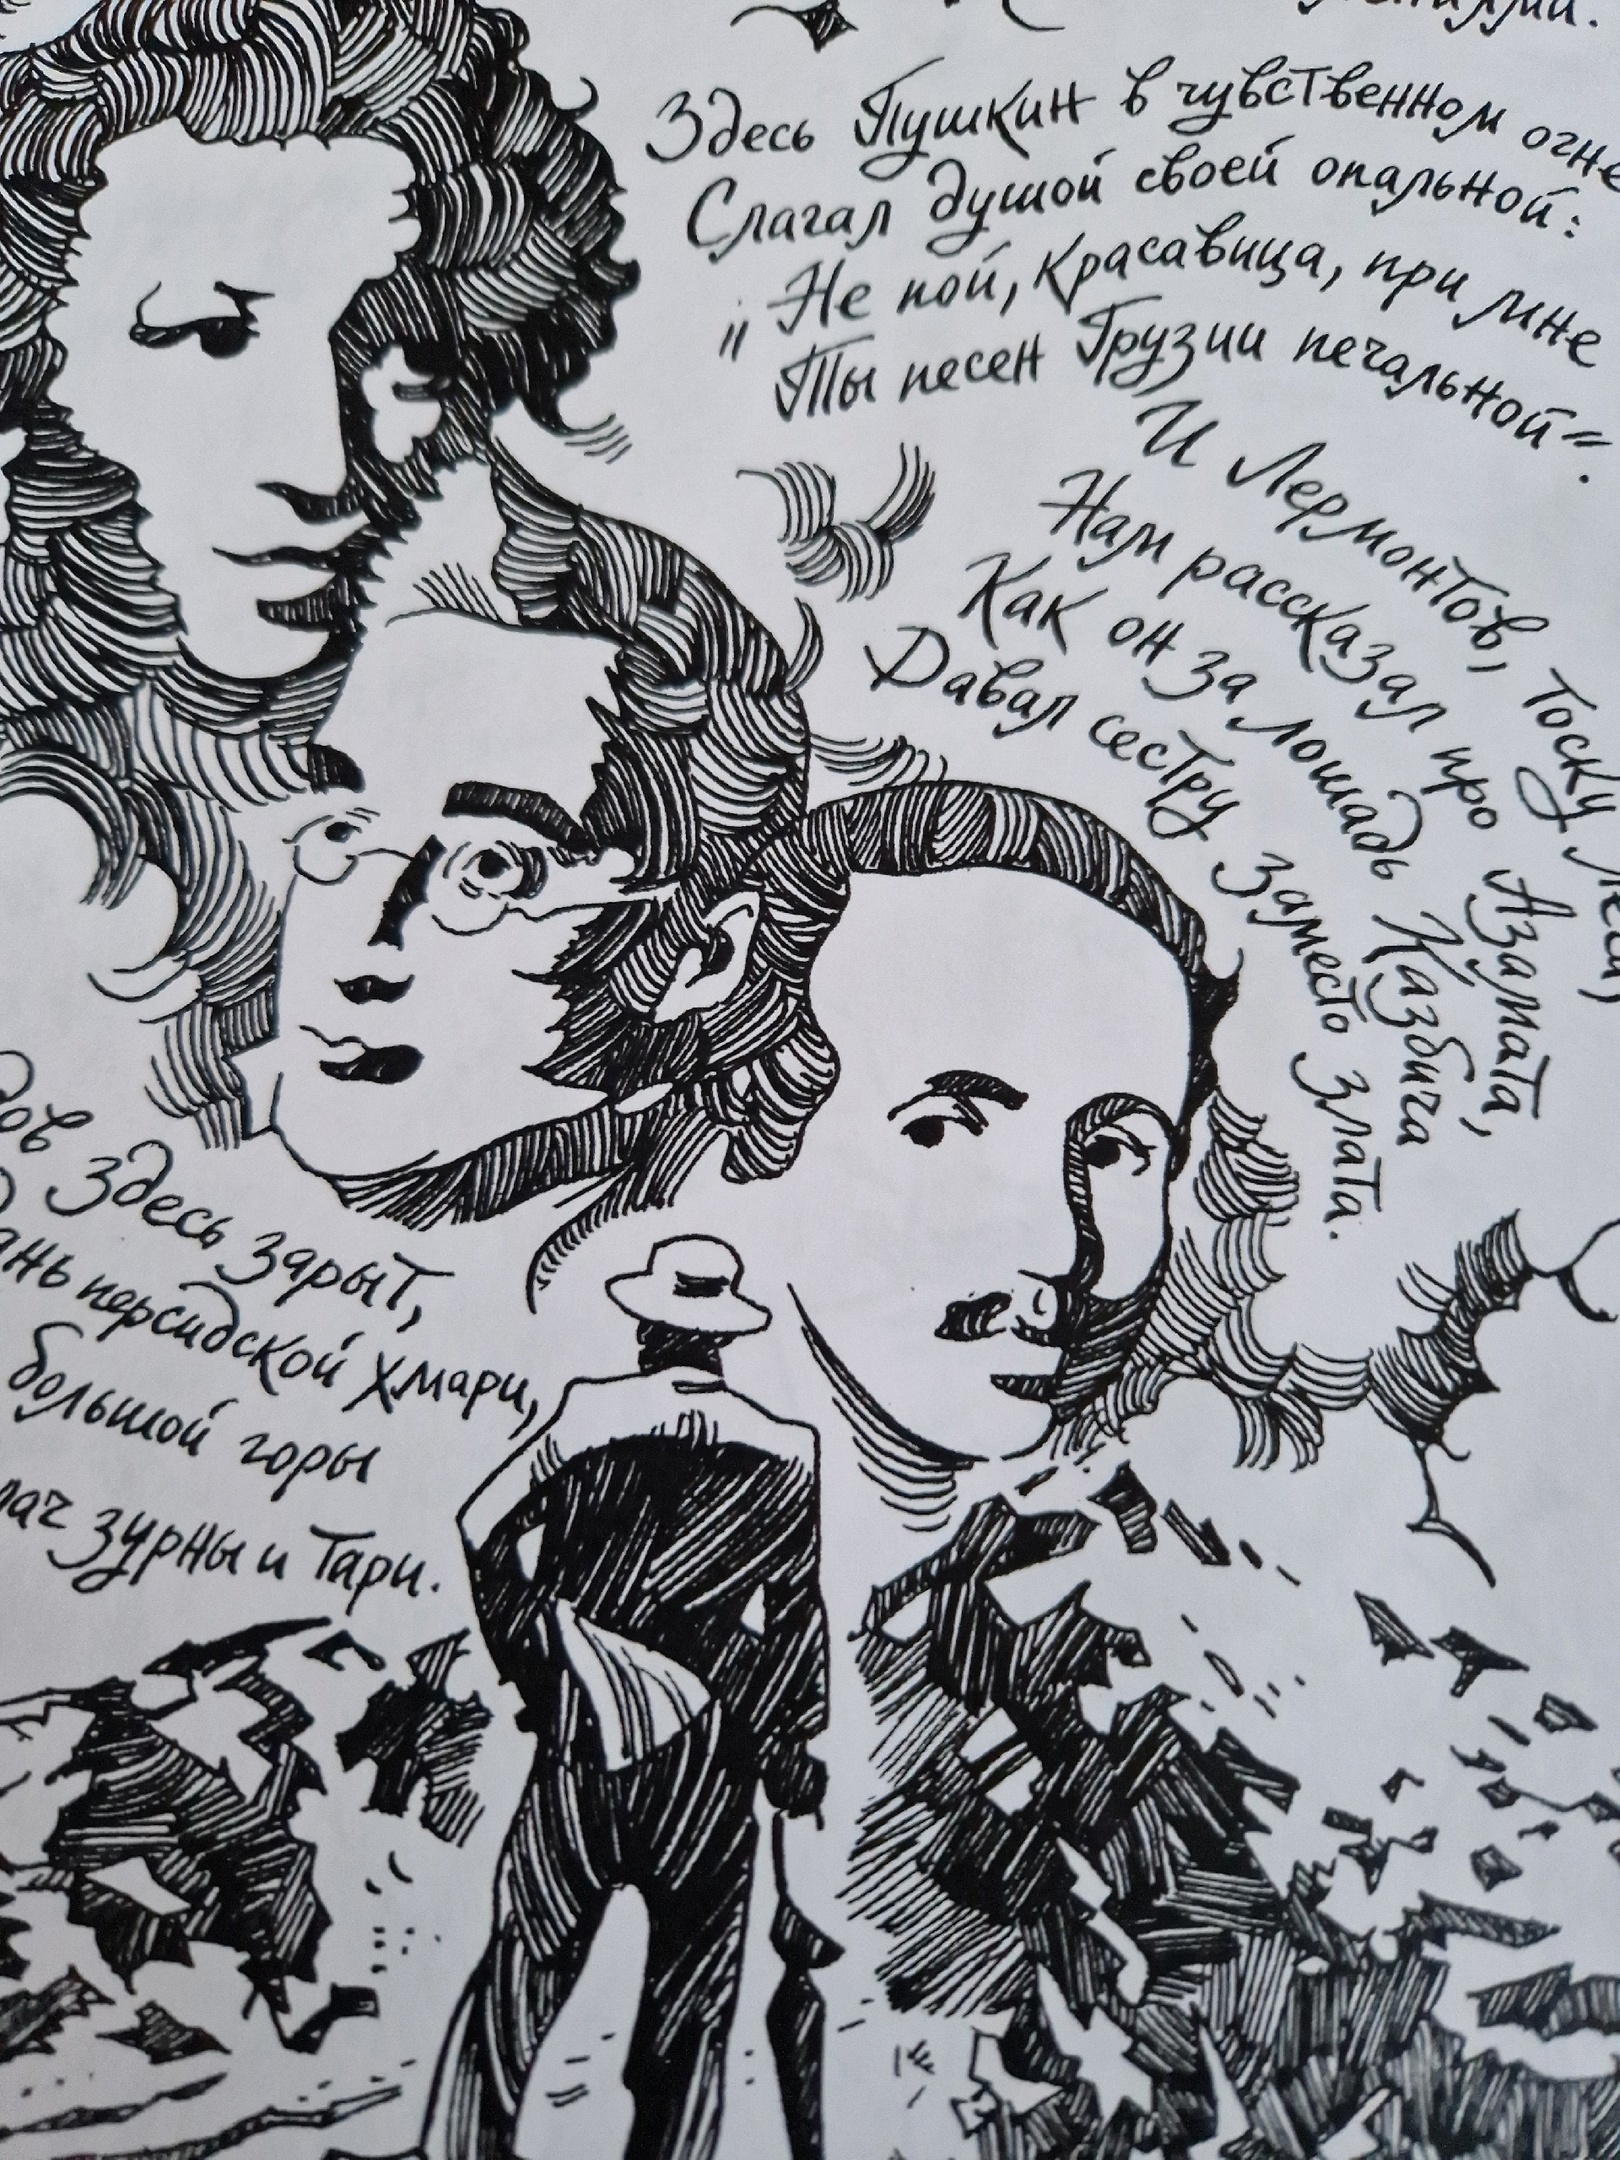 Здесь Пушкин в чувственном огне
Слагал душой своей опальной:
„Не пой, красавица, при мне
Ты песен Грузии печальной“.
И Лермонтов, тоску леча,
Нам рассказал про Азамата,
Как он за лошадь Казбича
Давал сестру заместо злата.
здесь зарыт,
персидской хмари,
большой горы
зурны и тари.